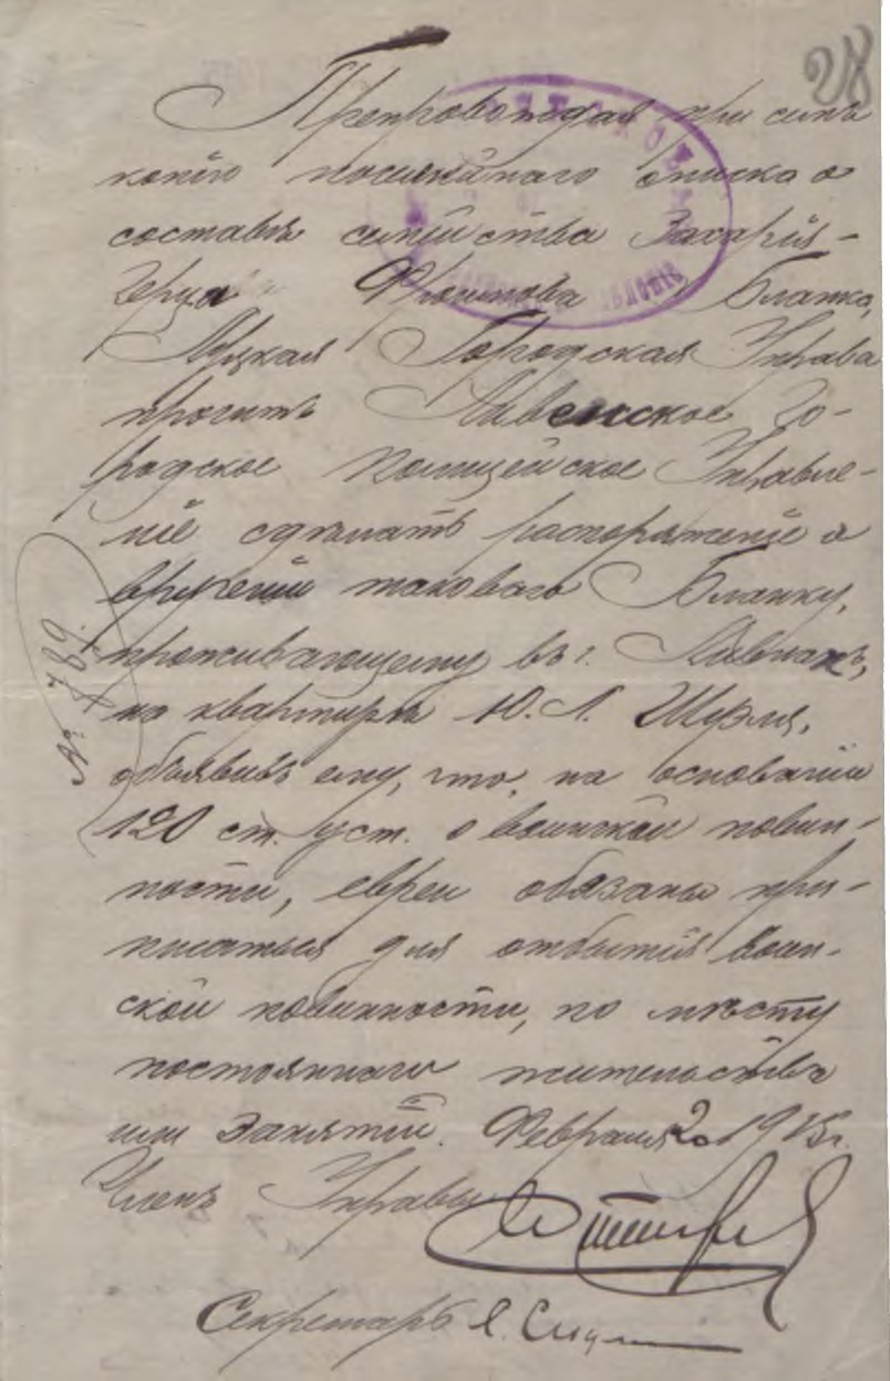 28
Препровождая при семъ
копію посемейнаго списка о
составѣ семейства Захарія-
Герца Бланка,
Луцкая Городская Управа
проситъ Ливенское Го-
родское Полицейское Управле-
ніе сдѣлать распоряженіе о
врученіи таковаго Бланку,
проживающему въ г. Ливнахъ,
по квартирѣ Ю. Л. Шуэля,
объявивъ ему, что, на основаніи
120 ст. уст. о воинской повин-
ности, евреи обязаны при-
писаться для отбытія воин-
ской повинности, по мѣсту
постояннаго жительства
или занятій. Февраля 20 1915 г.
Членъ Управы
Секретарь
№ 789.